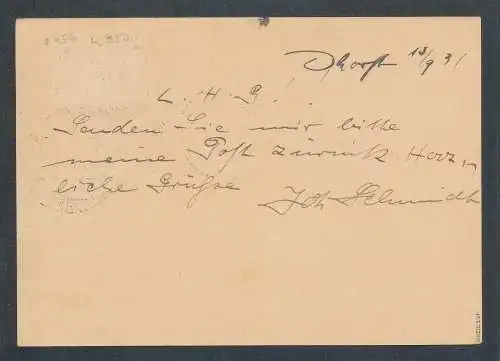 Dhorst 13/9 31
L. H. R!
Senden Sie mir bitte
meine Post zurück Herz-
liche Grüße
Joh Schmidt